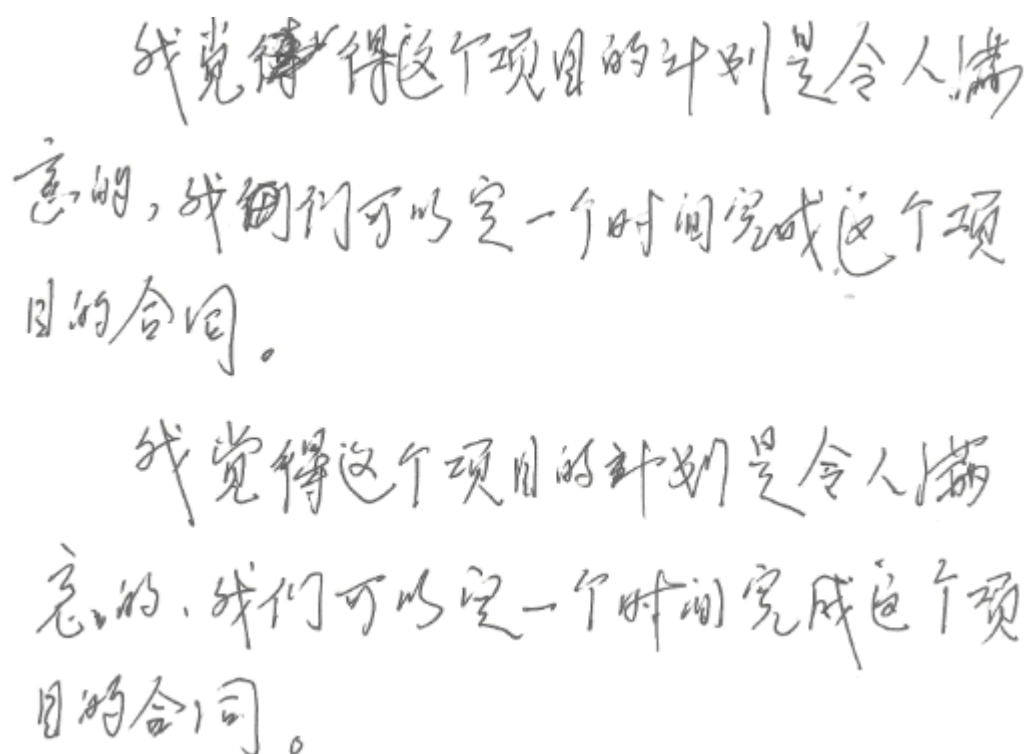 我觉得这个项目的计划是令人满
意的，我们可以定一个时间完成这个项
目的合同。
我觉得这个项目的计划是令人满
意的，我们可以定一个时间完成这个项
目的合同。